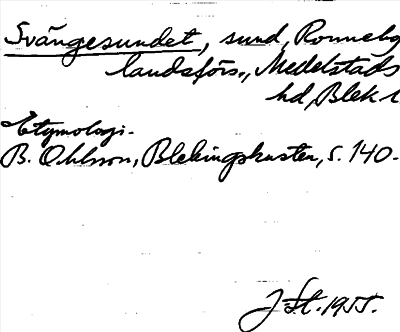 Svängesundet, sund, Ronneby
landsförs., Medelstads
hd, Blek. l
Etymologi.
B. Ohlsson, Blekingskusten, s. 140.
J St. 1955.